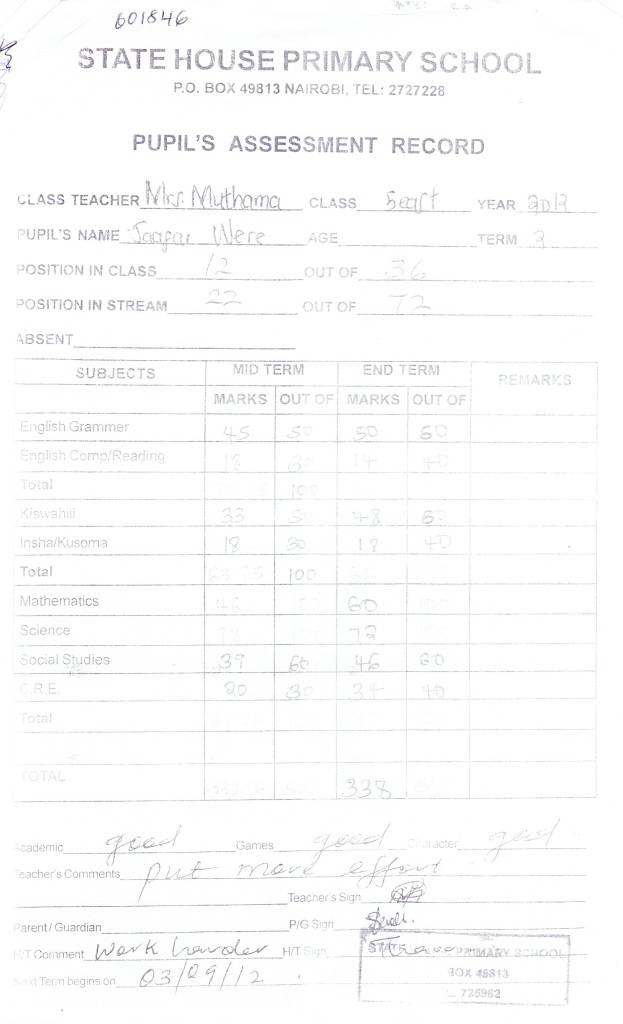 601846
STATE HOUSE PRIMARY SCHOOL
P.O. BOX 49813 NAIROBI, TEL: 2727228
PUPIL'S ASSESSMENT RECORD
CLASS TEACHER Mrs. Muthama CLASS YEAR 2012
PUPIL'S NAME Jaafar Were AGE TERM 2
POSITION IN CLASS 12 OUT OF 36
POSITION IN STREAM 22 OUT OF 72
ABSENT
SUBJECTS MID TERM END TERM REMARKS
MARKS OUT OF MARKS OUT OF
English Grammer 45 50 50 60
English Comp/Reading 18 30 14 40
Total 100
Kiswahili 33 50 48 60
Insha/Kusoma 18 30 18 40
Total 100
Mathematics 60
Science 72
Social Studies 39 60 46 60
C.R.E. 20 30 34 40
Total
TOTAL 338
Academic good Games good Character good
Teacher's Comments put more effort
Teacher's Sign
Parent / Guardian P/G Sign
H/T Comment Work harder H/T Sign
STATE PRIMARY SCHOOL
BOX 49813
725962
Next Term begins on 03/09/12